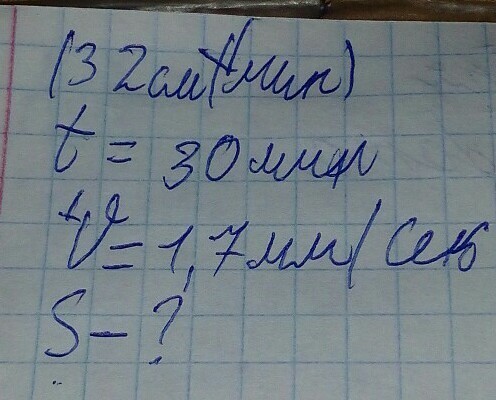 (32см/мин)
t = 30 мин
V = 1,7мм/сек
S - ?